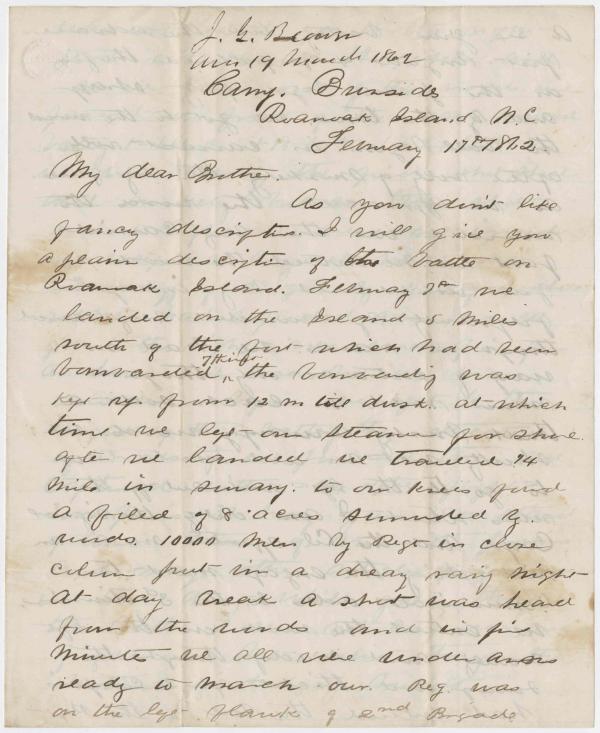 J. G. Brown
Ans 19 March 1862
Camp. Burnside
Roanoak Island N.C
February 17th 1862
My dear Brother.
As you don't like
fancy description. I will give you
a plain description of the battle on
Roanoak Island. February 7th we
landed on the Island 5 miles
south of the fort which had been
bombarded, 7th inst the bombarding was
kept up. from 12 m till dusk. at which
time we left our steamer for shore.
after we landed we traveled 3/4
mile in swamp. to our knees found
a filed of 8 acres surrounded by
woods. 10000 men by Regt in close
column put in a dreary rainy night
At day break a shot was heard
from the woods and in five
minutes we all were under arms
ready to march our. Reg. was
on the left flank of 2nd Brigade